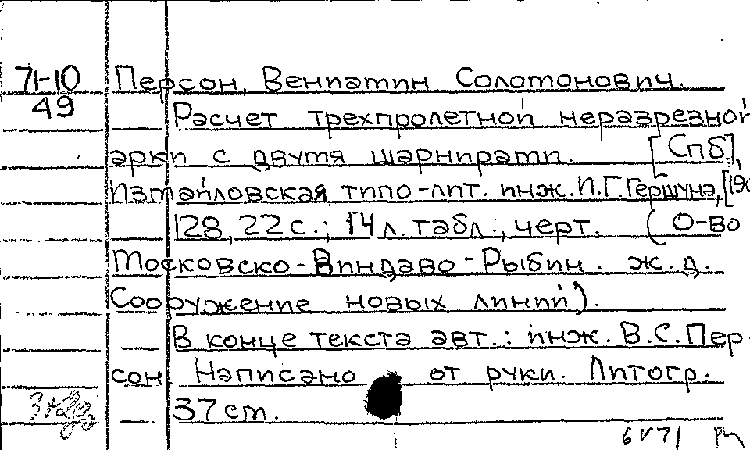 71-10 Персон, Вениамин Соломонович.
49 Расчет трехпролетной неразрезной
арки с двумя шарнирами. [Спб],
Измайловская типо-лит. инж. И.Г.Гершуна, [190
128, 22 с.; 14 л. табл., черт. (О-во
Московско-Виндаво-Рыбин. ж.д.
Сооружение новых линий).
В конце текста авт.: инж. В.С.Пер-
сон. Написано от руки. Литогр.
37 cm.
6 V 71